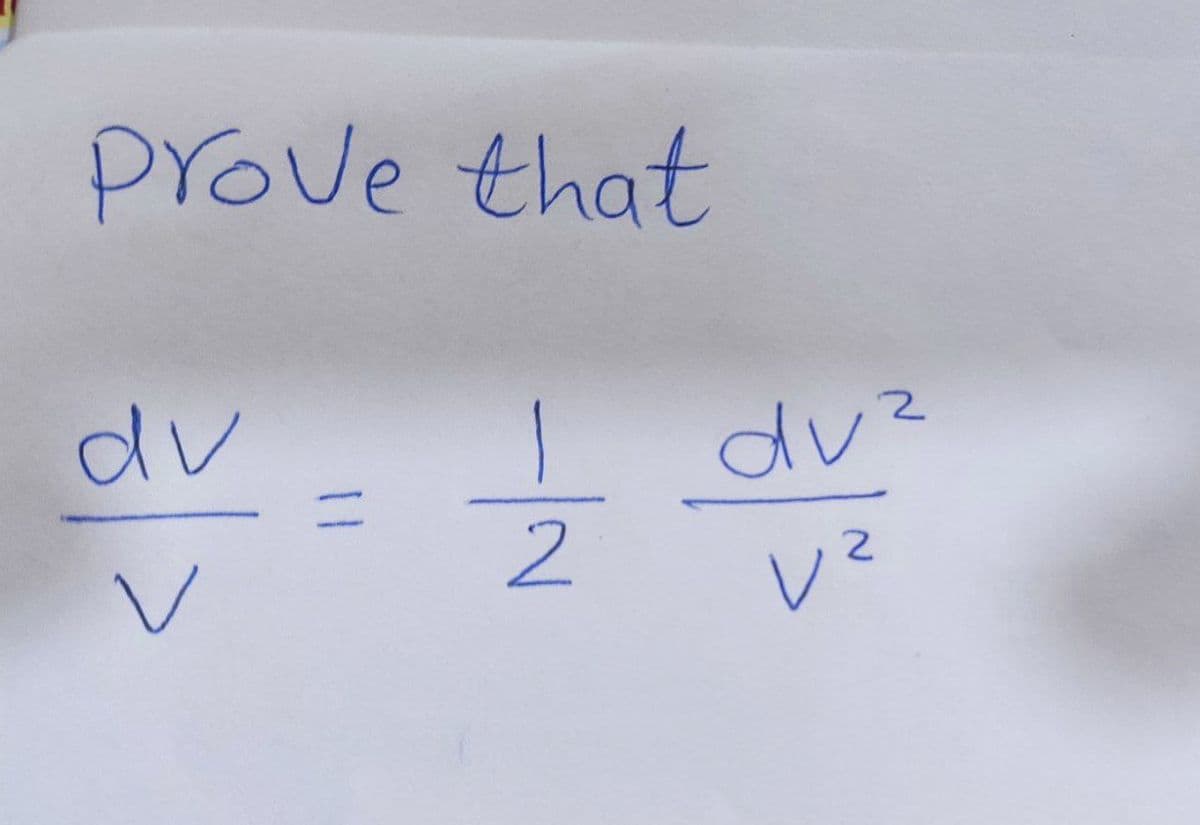 Prove that
dv/v = 1/2 dv²/v²